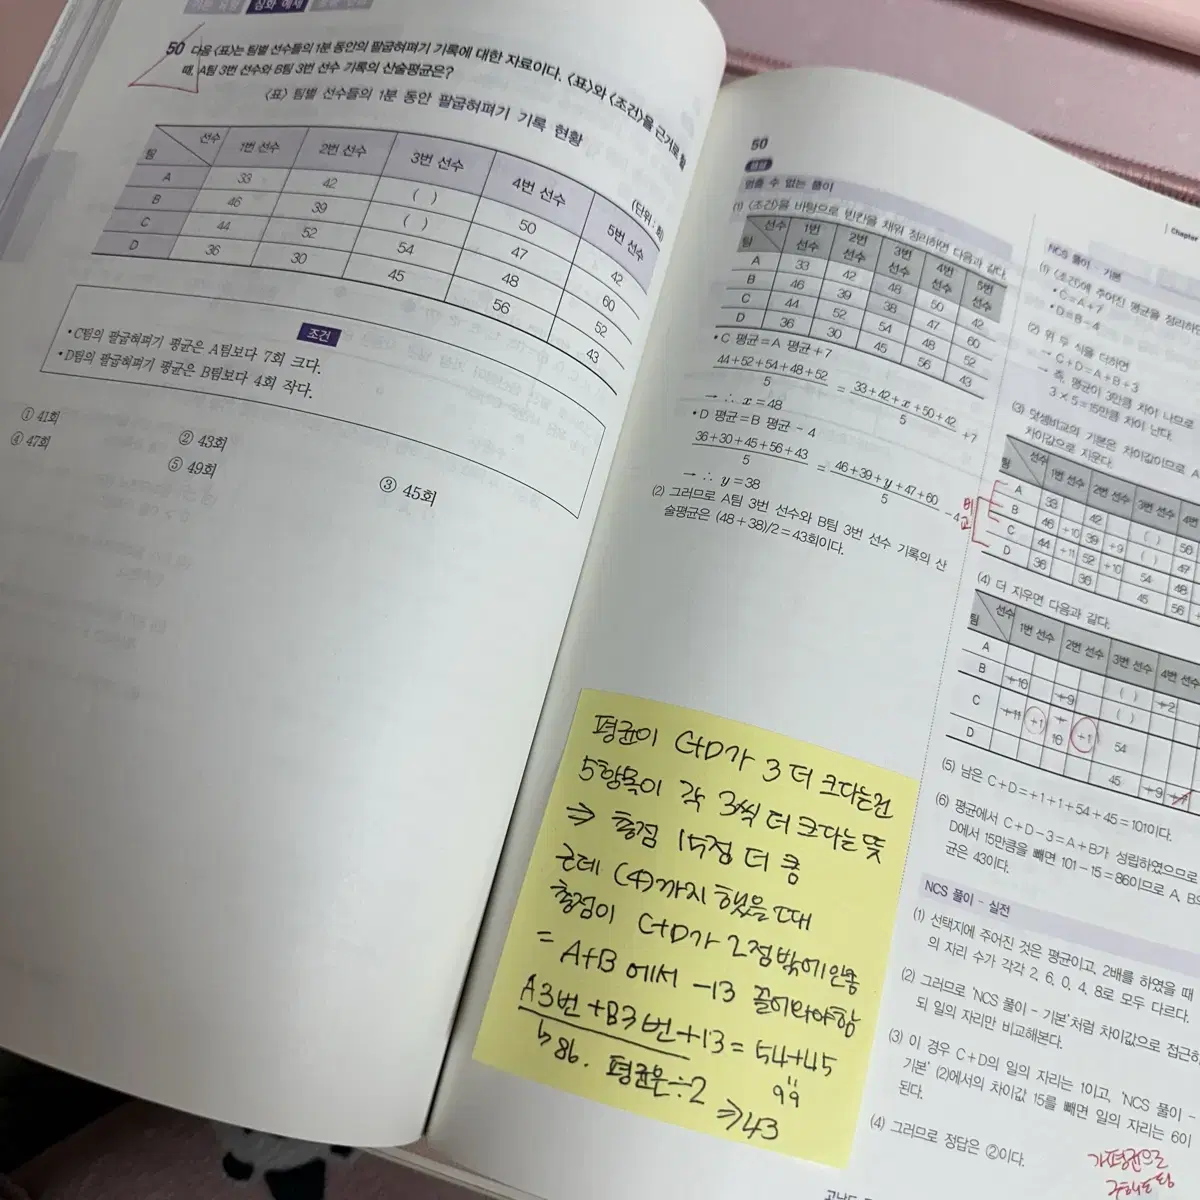 심화 예제
50 다음 <표>는 팀별 선수들의 1분 동안의 팔굽혀펴기 기록에 대한 자료이다. <표>와 <조건>을 근거로 할
때, A팀 3번 선수와 B팀 3번 선수 기록의 산술평균은?
<표> 팀별 선수들의 1분 동안 팔굽혀펴기 기록 현황
(단위: 회)
선수 팀 1번 선수 2번 선수 3번 선수 4번 선수 5번 선수
A 33 42 ( ) 50 42
B 46 39 ( ) 47 60
C 44 52 54 48 52
D 36 30 45 56 43
조건
• C팀의 팔굽혀펴기 평균은 A팀보다 7회 크다.
• D팀의 팔굽혀펴기 평균은 B팀보다 4회 작다.
① 41회 ② 43회 ③ 45회
④ 47회 ⑤ 49회
50
해설
멈출 수 없는 풀이
(1) <조건>을 바탕으로 빈칸을 채워 정리하면 다음과 같다.
선수 팀 1번 선수 2번 선수 3번 선수 4번 선수 5번 선수
A 33 42 48 50 42
B 46 39 38 47 60
C 44 52 54 48 52
D 36 30 45 56 43
• C 평균=A 평균+7
44+52+54+48+52 / 5 = 33+42+x+50+42 / 5 +7
→ ∴ x=48
• D 평균=B 평균-4
36+30+45+56+43 / 5 = 46+39+y+47+60 / 5 -4
→ ∴ y=38
(2) 그러므로 A팀 3번 선수와 B팀 3번 선수 기록의 산
술평균은 (48+38)/2=43회이다.
평균이 C+D가 3 더 크다는건
5항목이 각 3씩 더 크다는 뜻
⇒ 총점 15점 더 큼
근데 (4)까지 했을 때
총점이 C+D가 2점밖에 안높
= A+B에서 -13 끌어와야함
A3번+B3번+13=54+45
99
↳ 86. 평균은 ÷2 ⇒43
Chapter
NCS 풀이 - 기본
(1) <조건>에 주어진 평균을 정리하면
• C=A+7
• D=B-4
(2) 위 두 식을 더하면
→ C+D=A+B+3
→ 즉, 평균이 3만큼 차이 나므로
3×5=15만큼 차이 난다.
(3) 덧셈비교의 기본은 차이값이므로
차이값으로 지운다.
선수 팀 1번 선수 2번 선수 3번 선수 4번
A 33 42 ( ) 50
B 46 +10 39 +9 ( ) 47
C 44 +11 52 +10 54 48
D 36 30 45 56
비교
(4) 더 지우면 다음과 같다.
선수 팀 1번 선수 2번 선수 3번 선수 4번 선수
A ( )
B +10 +9 ( ) +2
C +11 +1 +10 +1 54
D 45 +9
(5) 남은 C+D=+1+1+54+45=101이다.
(6) 평균에서 C+D-3=A+B가 성립하였으므로
D에서 15만큼을 빼면 101-15=86이므로 A, B의
균은 43이다.
NCS 풀이 - 실전
(1) 선택지에 주어진 것은 평균이고, 2배를 하였을 때
의 자리 수가 각각 2, 6, 0, 4, 8로 모두 다르다.
(2) 그러므로 'NCS 풀이 - 기본'처럼 차이값으로 접근하
되 일의 자리만 비교해본다.
(3) 이 경우 C+D의 일의 자리는 1이고, 'NCS 풀이 -
기본' (2)에서의 차이값 15를 빼면 일의 자리는 6이
된다.
(4) 그러므로 정답은 ②이다.
가평균으로